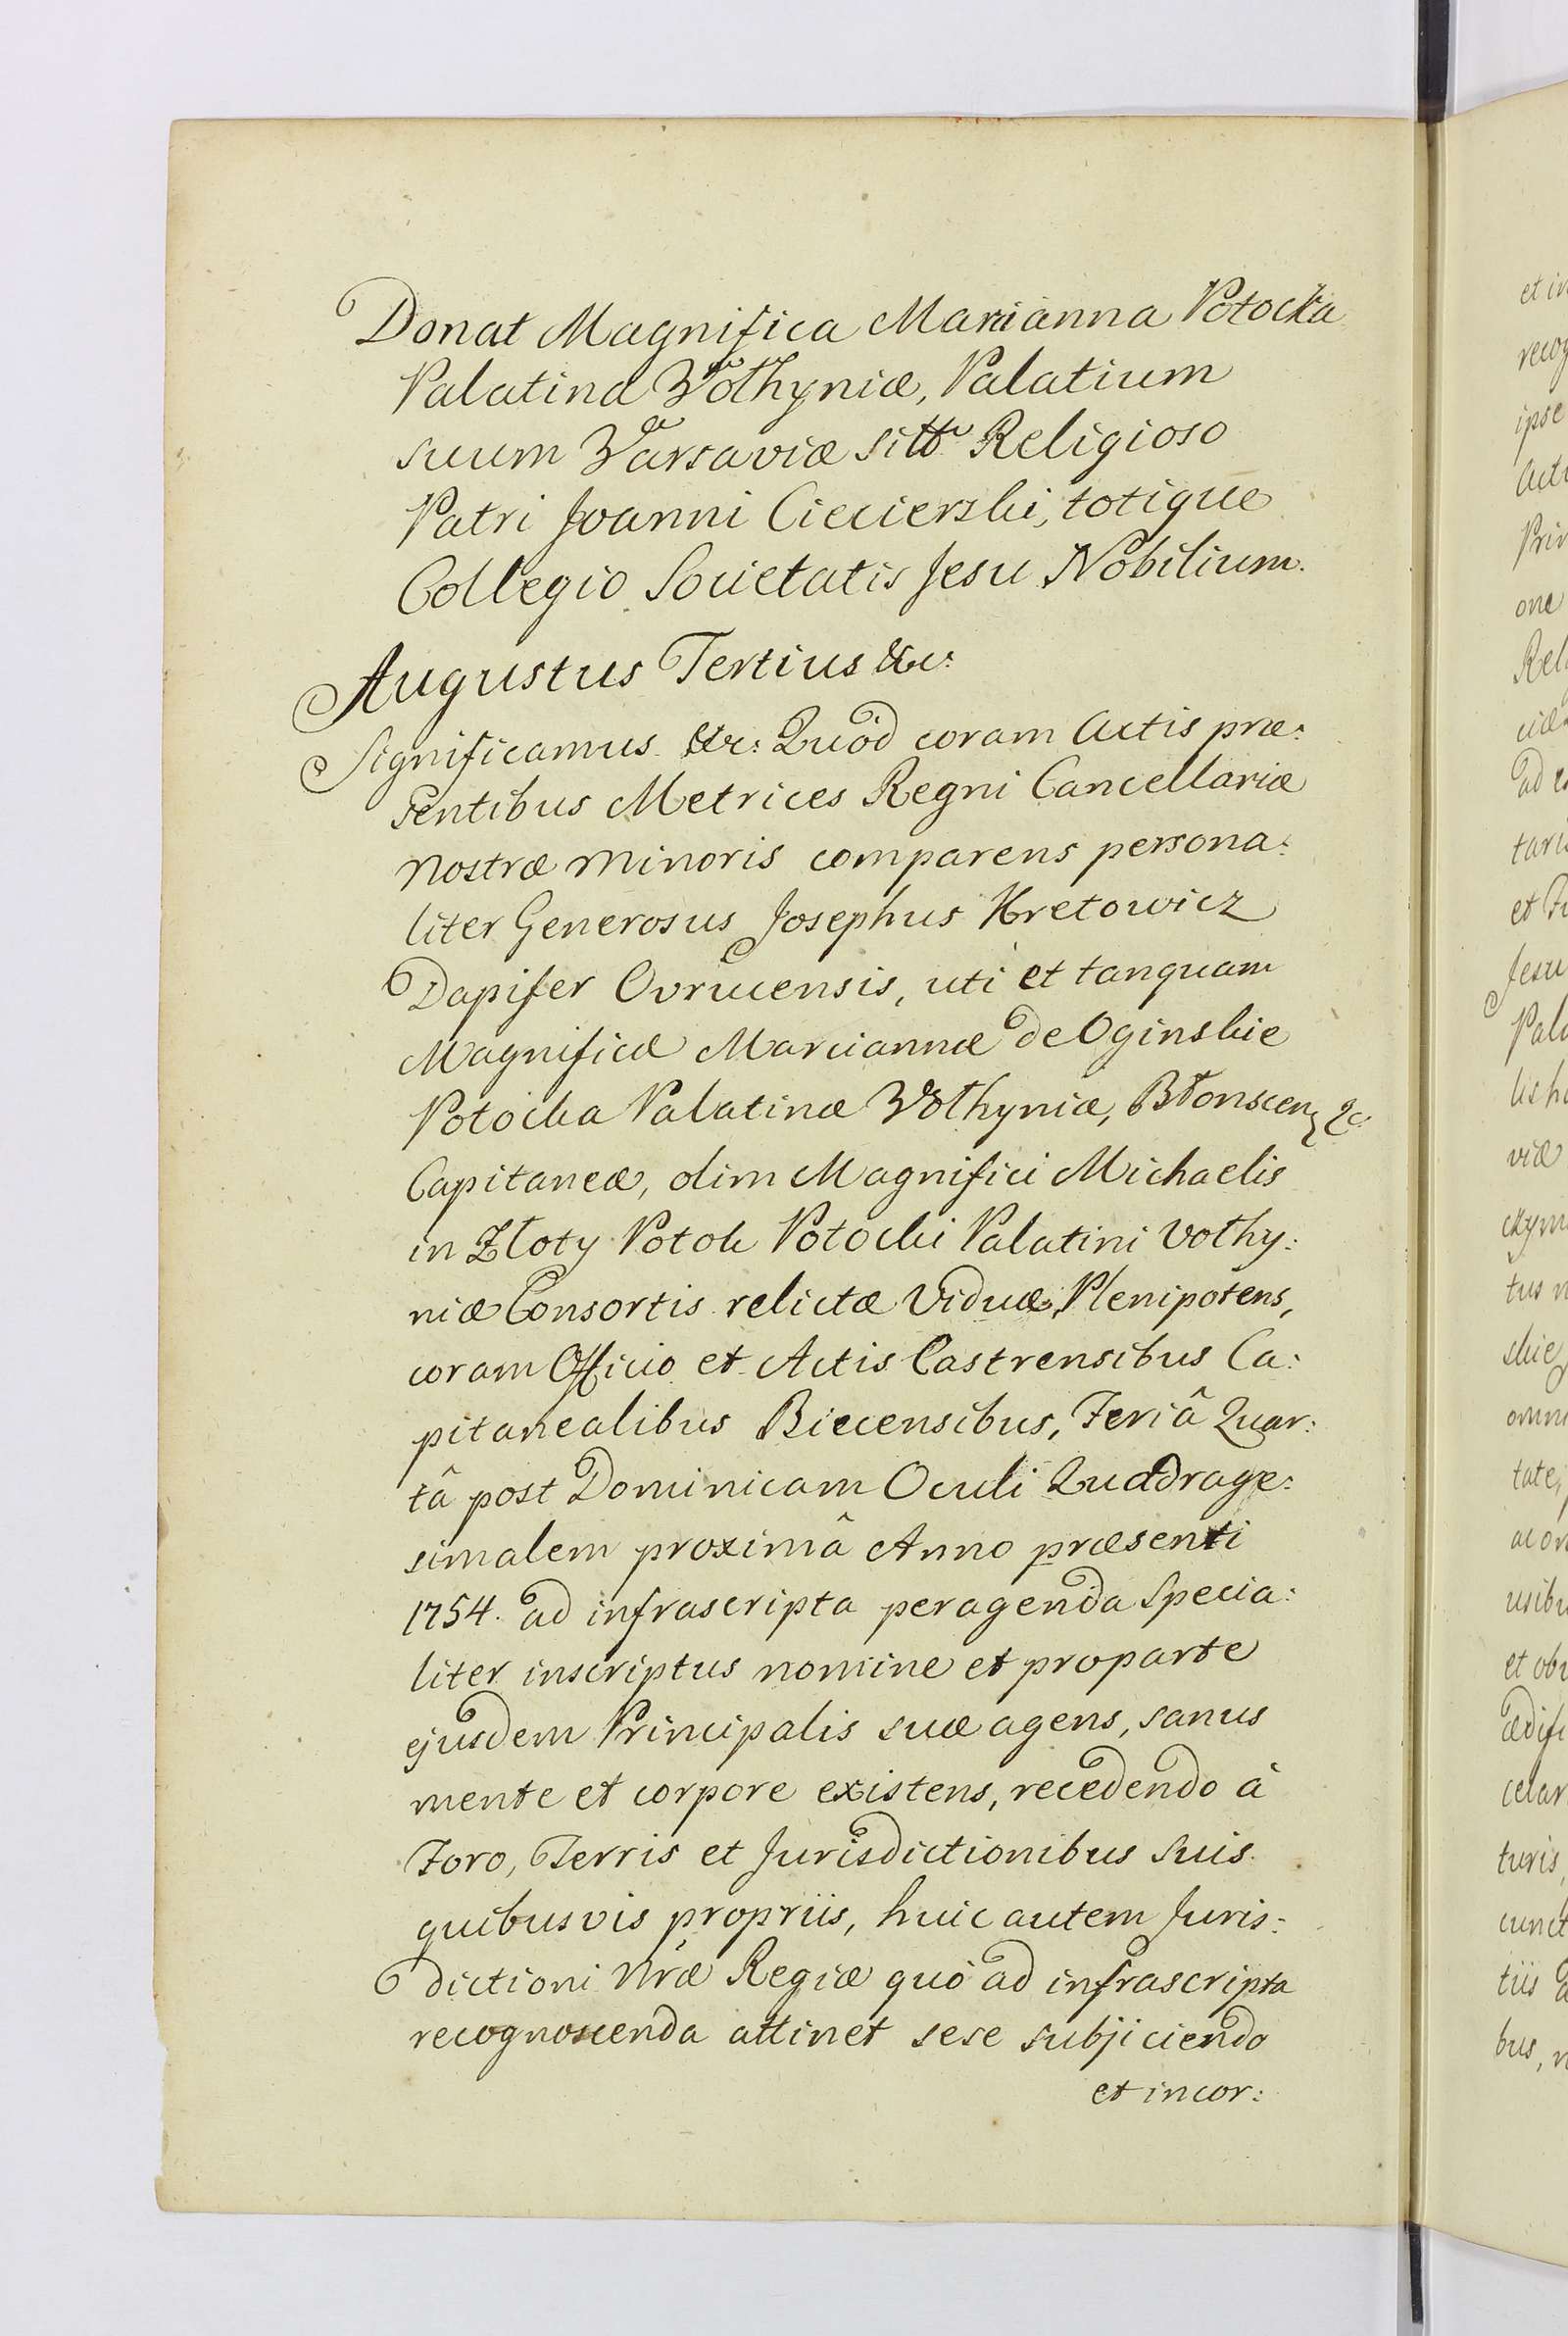 Donat Magnifica Marcianna Potocka
Palatina Wołhyniæ, Palatium
suum Varsaviæ sittū Religioso
Patri Joanni Ciecierski, totique
Collegio Societatis Jesu Nobilium.
Augustus Tertius &c:
Significamus &c: Quòd coram Actis præ:
sentibus Metrices Regni Cancellariæ
Nostræ Minoris comparens persona:
liter Generosus Josephus Kretowicz
Dapifer Ovrucensis, uti et tanquam
Magnificæ Marciannæ de Oginskie
Potocka Palatinæ Wołhyniæ, Błonscen &c:
Capitaneæ, olim Magnifici Michaelis
in Złoty Potok Potocki Palatini Vołhy:
niæ Consortis relictæ Viduæ, Plenipotens,
coram Officio et Actis Castrensibus Ca:
pitanealibus Biecensibus, Feriâ Quar:
tâ post Dominicam Oculi Quadrage:
simalem proximâ Anno præsenti
1754. ad infrascripta peragenda specia:
liter inscriptus nomine et proparte
ejusdem Principalis suæ agens, sanus
mente et corpore existens, recedendo à
Foro, Terris et Jurisdictionibus suis
quibusvis propriis, huic autem Juris:
dictioni Nræ Regiæ quò ad infrascripta
recognoscenda attinet sese subjiciendo
et incor: